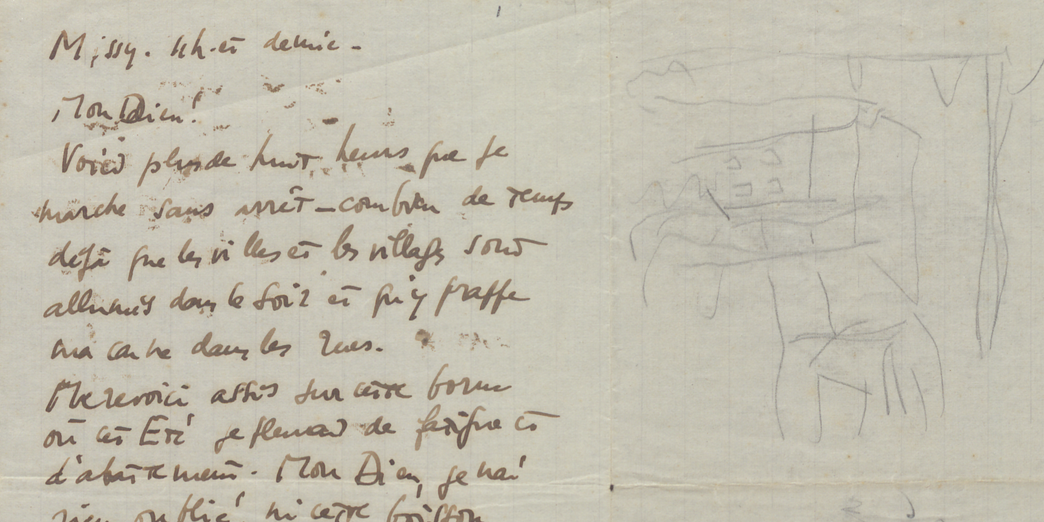 Missy. 4h. et demie.
Mon Dieu!
Voici plus de huit heures que je
marche sans arrêt - combien de temps
déjà que les villes et les villages sont
allumés dans le soir et qu'y
ma canne dans les rues.
Me revoici assis sur cette borne
où cet Été je pleurais de fatigue et
d'abattement. Mon Dieu, je n'ai
rien oublié ni cette